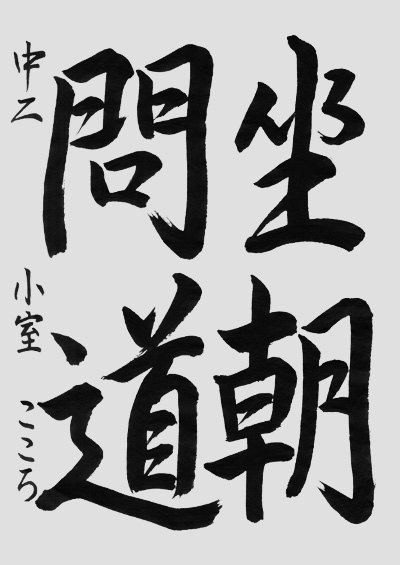 坐朝
問道
中二 小室 こころ